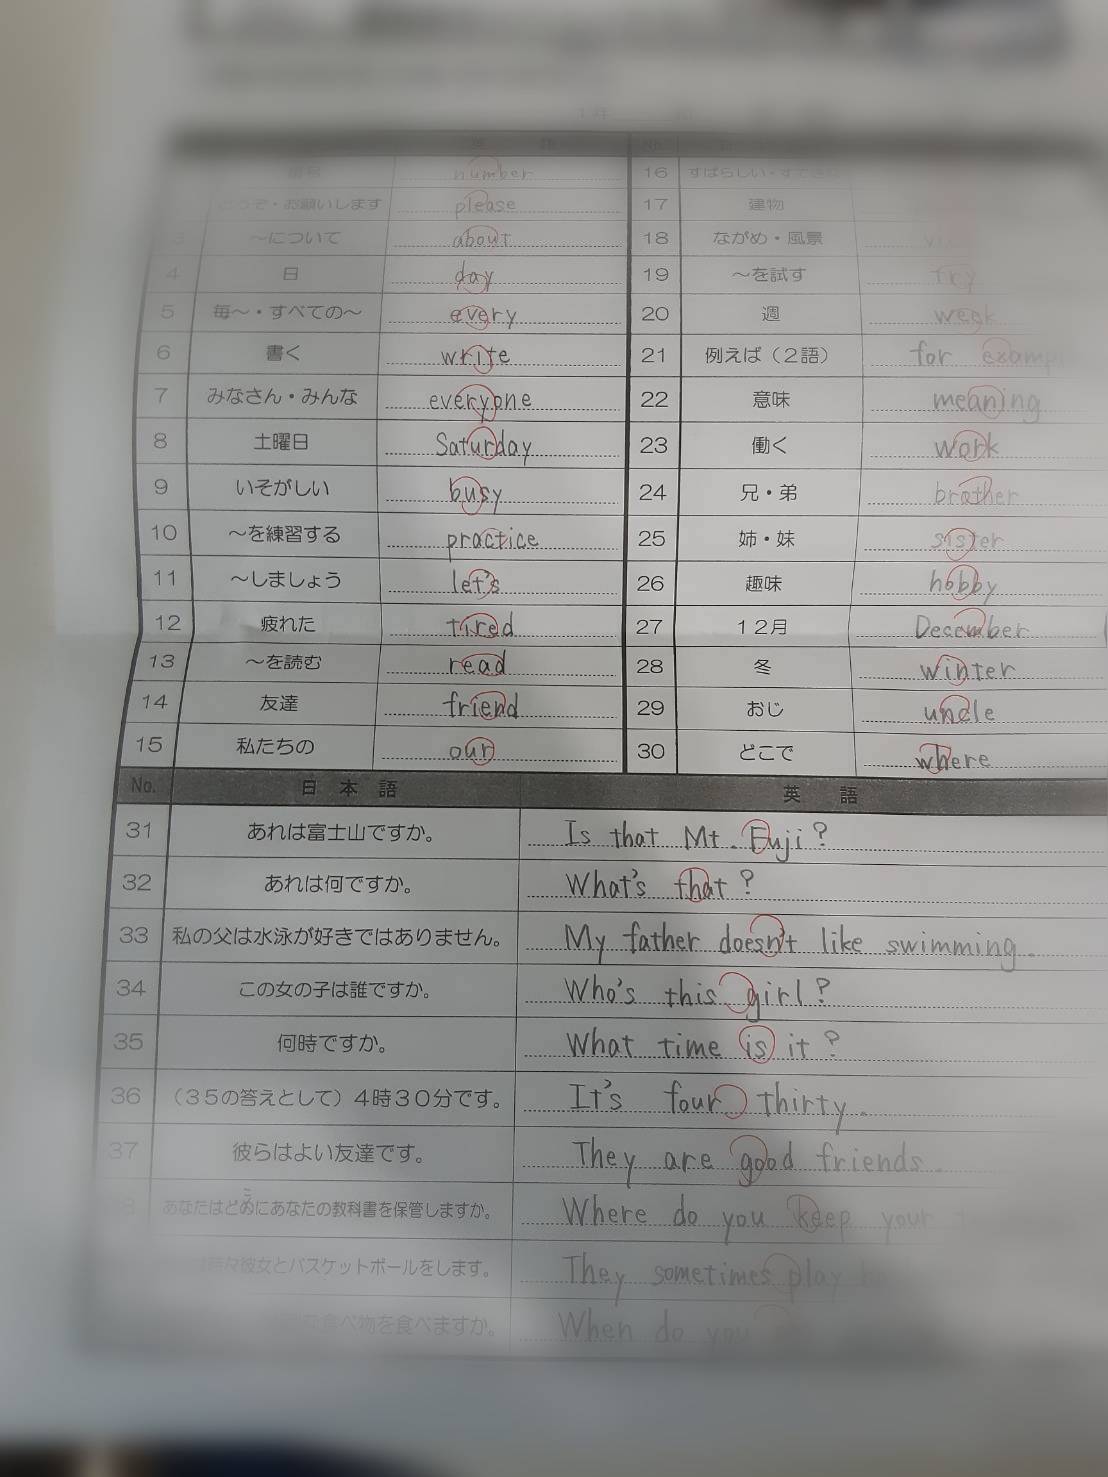 英 語
number 16
・お願いします please 17 建物
～について about 18 ながめ・風景
4 日 day 19 ～を試す try
5 毎～・すべての～ every 20 週 week
6 書く write 21 例えば（２語） for
7 みなさん・みんな everyone 22 意味 meaning
8 土曜日 Saturday 23 働く work
9 いそがしい busy 24 兄・弟 brother
10 ～を練習する practice 25 姉・妹 sister
11 ～しましょう let's 26 趣味 hobby
12 疲れた tired 27 １２月 December
13 ～を読む read 28 冬 winter
14 友達 friend 29 おじ uncle
15 私たちの our 30 どこで where
No. 日 本 語 英 語
31 あれは富士山ですか。 Is that Mt. Fuji?
32 あれは何ですか。 What's that?
33 私の父は水泳が好きではありません。 My father doesn't like swimming.
34 この女の子は誰ですか。 Who's this girl?
35 何時ですか。 What time is it?
36 （３５の答えとして）４時３０分です。 It's four thirty.
37 彼らはよい友達です。 They are good friends.
あなたはどこにあなたの教科書を保管しますか。 Where do you keep your
彼女とバスケットボールをします。 They sometimes play
食べ物を食べますか。 When do you